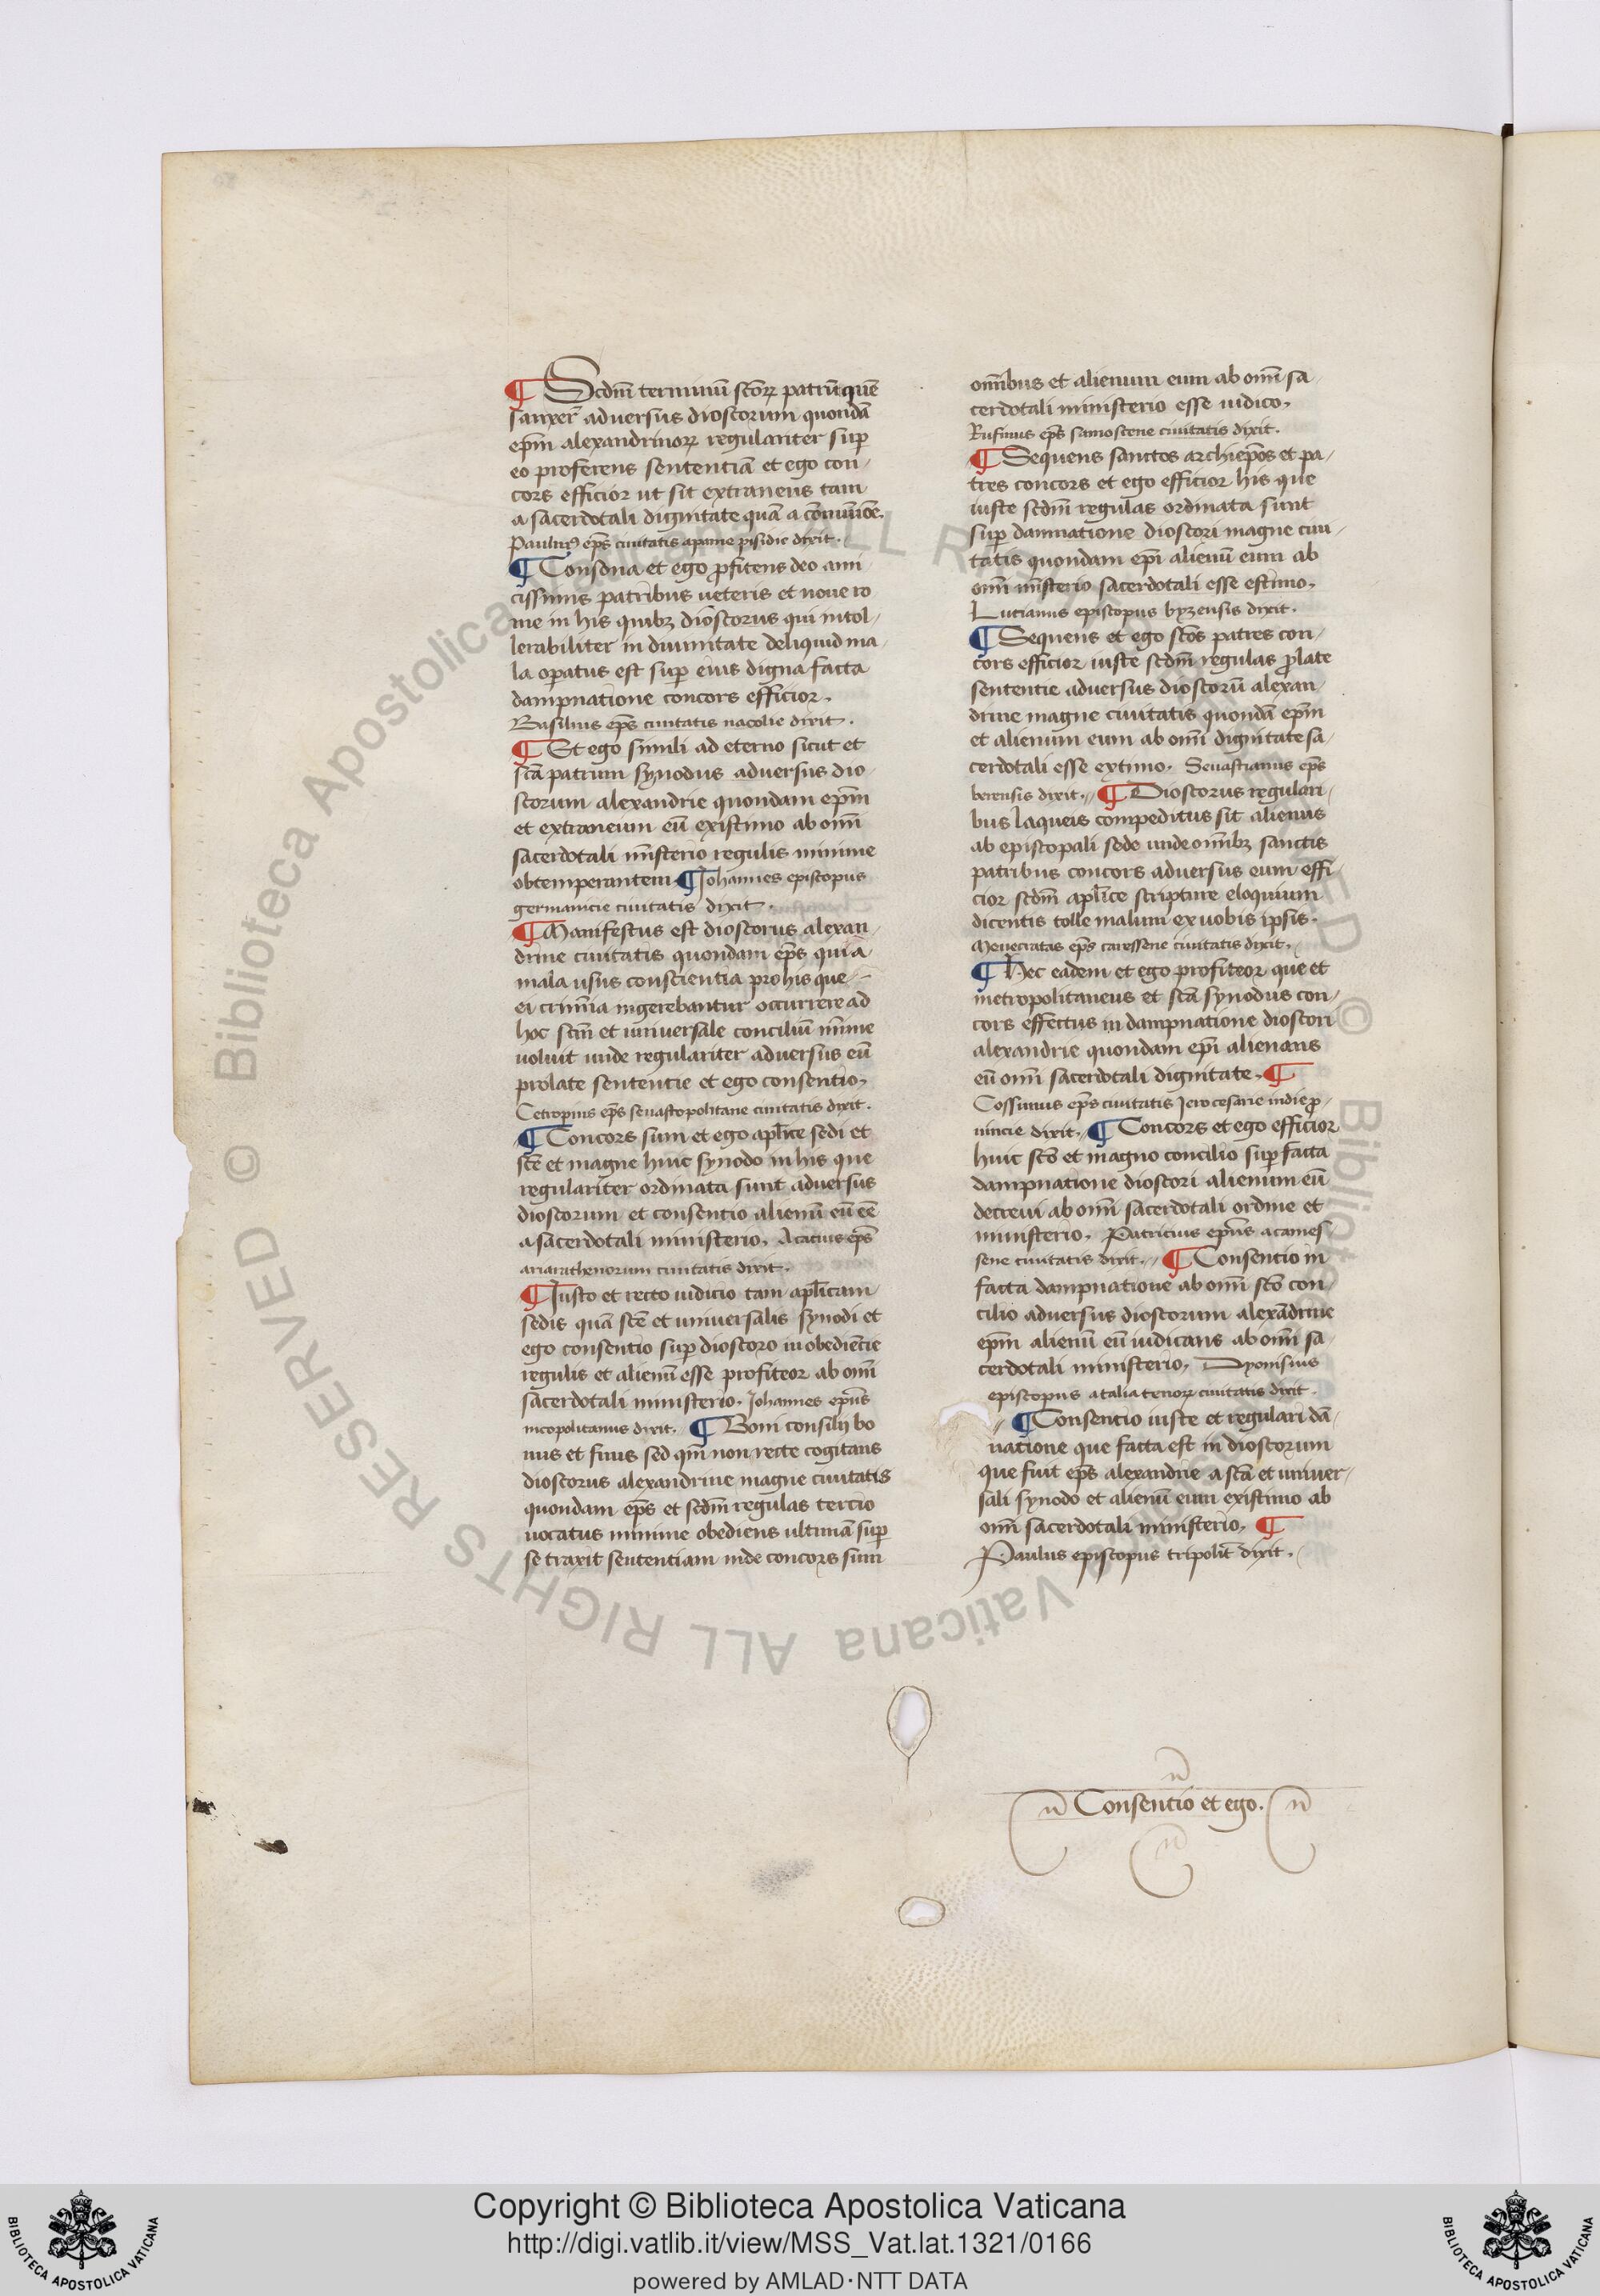 ¶ Scdm̄ terminū scōꝝ patrū quē
sanxer̄ adversus dioscorum quondā
ep̄m alexandrinoꝝ regulariter suꝑ
eo proferens sententiā et ego con-
cors efficior ut sit extraneus tam
a sacerdotali dignitate quā a cōmunioē.
Paulus ep̄s civitatis apame pisidie dixit.
¶ Consona et ego ꝓfitens deo ami
cissimis patribus veteris et nove ro
me in his quibꝫ dioscorus qui intol-
lerabiliter in divinitate deliquid ma-
la oꝑatus est suꝑ eius digna facta
dampnatione concors efficior.
Basilius ep̄s civitatis nacolie dixit.
¶ Et ego simili ad eterno sicut et
scā patrum synodus adversus dio-
scorum alexandrie quondam ep̄m
et extraneum eū existimo ab om̄i
sacerdotali mīsterio regulis minime
obtemperantem. ¶ Johannes episcopus
germanicie civitatis dixit.
¶ Manifestus est dioscorus alexan-
drine civitatis quondam ep̄s quia
mala usus conscientia pro his que
ei crimīa ingerebantur occurrere ad
hoc scm̄ et universale conciliū mīme
voluit unde regulariter adversus eū
prolate sententie et ego consentio.
Cetropius ep̄s sevastopolitane civitatis dixit.
¶ Concors sum et ego apl̄ice sedi et
scē et magne huic synodo in his que
regulariter ordinata sunt adversus
dioscorum et consentio alienū eū eē
a sacerdotali ministerio. Acacius ep̄s
ariarathenorum civitatis dixit.
¶ Justo et recto iudicio tam apl̄icam
sedis quā scē et universalis synodi et
ego consentio suꝑ dioscoro inobediēcie
regulis et alienū esse profiteor ab om̄i
sacerdotali ministerio. Johannes epūs
nicopolitanus dixit. ¶ Boni consilij bo
nus et finis sed qm̄ non recte cogitans
dioscorus alexandrine magne civitatis
quondam ep̄s et scdm̄ regulas tercio
vocatus minime obediens ultimā suꝑ
se traxit sententiam inde concors sum
om̄ibus et alienum eum ab om̄i sa-
cerdotali ministerio esse iudico.
Rufinus ep̄s samoscene civitatis dixit.
¶ Sequens sanctos archiep̄os et pa-
tres concors et ego efficior his que
iuste scdm̄ regulas ordinata sunt
suꝑ damnatione dioscori magne civi-
tatis quondam ep̄i alienū eum ab
om̄i mīsterio sacerdotali esse estimo.
Lucianus episcopus byzensis dixit.
¶ Sequens et ego scōs patres con-
cors efficior iuste scdm̄ regulas ꝓlate
sententie adversus dioscorū alexan-
drine magne civitatis quondā ep̄m
et alienum eum ab om̄i dignitate sa-
cerdotali esse extimo. Sevastianus ep̄s
berensis dixit. ¶ Dioscorus regulari-
bus laqueis compeditus sit alienus
ab episcopali sede unde om̄ibꝫ sanctis
patribus concors adversus eum effi-
cior scdm̄ apl̄ice scripture eloquium
dicentis tolle malum ex vobis ipsis.
Menecratas ep̄s caressene civitatis dixit.
¶ Hec eadem et ego profiteor que et
metropolitaneus et scā synodus con-
cors effectus in dampnatione dioscori
alexandrie quondam ep̄i alienans
eū om̄i sacerdotali dignitate. ¶
Cossimus ep̄s civitatis Jerocesarie indie ꝓ-
vincie dixit. ¶ Concors et ego efficior
huic scō et magno concilio suꝑ facta
dampnatione dioscori alienum eū
decrevi ab om̄i sacerdotali ordine et
ministerio. Patricius epūs acames-
sene civitatis dixit. ¶ Consentio in
facta dampnatione ab om̄i scō con-
cilio adversus dioscorum alexādrine
ep̄m alienū eū iudicans ab om̄i sa-
cerdotali ministerio. Dyonisius
episcopus atalia tenoꝝ civitatis dixit.
¶ Consentio iuste et regulari dā-
natione que facta est in dioscorum
que fuit ep̄s alexandrie a scā et univer-
sali synodo et alienū eum existimo ab
om̄i sacerdotali ministerio. ¶
Paulus episcopus tripolit̄ dixit.
Consentio et ego.
© Biblioteca Apostolica Vaticana ALL RIGHTS RESERVED
Copyright © Biblioteca Apostolica Vaticana
http://digi.vatlib.it/view/MSS_Vat.lat.1321/0166
powered by AMLAD·NTT DATA
BIBLIOTECA APOSTOLICA VATICANA
BIBLIOTECA APOSTOLICA VATICANA